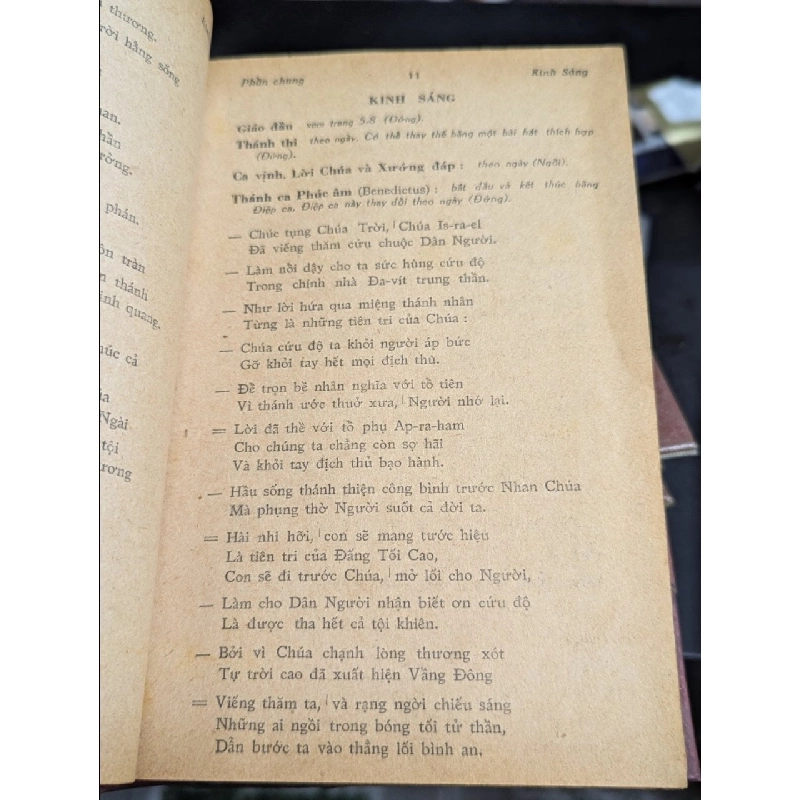 thương.
rời hằng sống
phán.
thánh
inh quang.
húc cả
Ngài
tội
ương
Phần chung 11 Kinh Sáng
KINH SÁNG
Giáo đầu xem trang 5.8 (Đứng).
Thánh thi theo ngày. Có thể thay thế bằng một bài hát thích hợp
(Đứng).
Ca vịnh, Lời Chúa và Xướng đáp : theo ngày (Ngồi).
Thánh ca Phúc âm (Benedictus) : bắt đầu và kết thúc bằng
Điệp ca, Điệp ca này thay đổi theo ngày (Đứng).
— Chúc tụng Chúa Trời, | Chúa Is-ra-el
Đã viếng thăm cứu chuộc Dân Người.
— Làm nồi dậy cho ta sức hùng cứu độ
Trong chính nhà Đa-vít trung thần.
— Như lời hứa qua miệng thánh nhân
Từng là những tiên tri của Chúa :
— Chúa cứu độ ta khỏi người áp bức
Gỡ khỏi tay hết mọi địch thù.
— Đề trọn bề nhân nghĩa với tồ tiên
Vì thánh ước thuở xưa, | Người nhớ lại.
= Lời đã thề với tồ phụ Ap-ra-ham
Cho chúng ta chẳng còn sợ hãi
Và khỏi tay địch thủ bạo hành.
— Hầu sống thánh thiện công bình trước Nhan Chúa
Mà phụng thờ Người suốt cả đời ta.
= Hài nhi hỡi, | con sẽ mang tước hiệu
Là tiên tri của Đấng Tối Cao,
Con sẽ đi trước Chúa, | mở lối cho Người,
— Làm cho Dân Người nhận biết ơn cứu độ
Là được tha hết cả tội khiên.
— Bởi vì Chúa chạnh lòng thương xót
Tự trời cao đã xuất hiện Vầng Đông
= Viếng thăm ta, | và rạng ngời chiếu sáng
Những ai ngồi trong bóng tối tử thần,
Dẫn bước ta vào thẳng lối bình an.